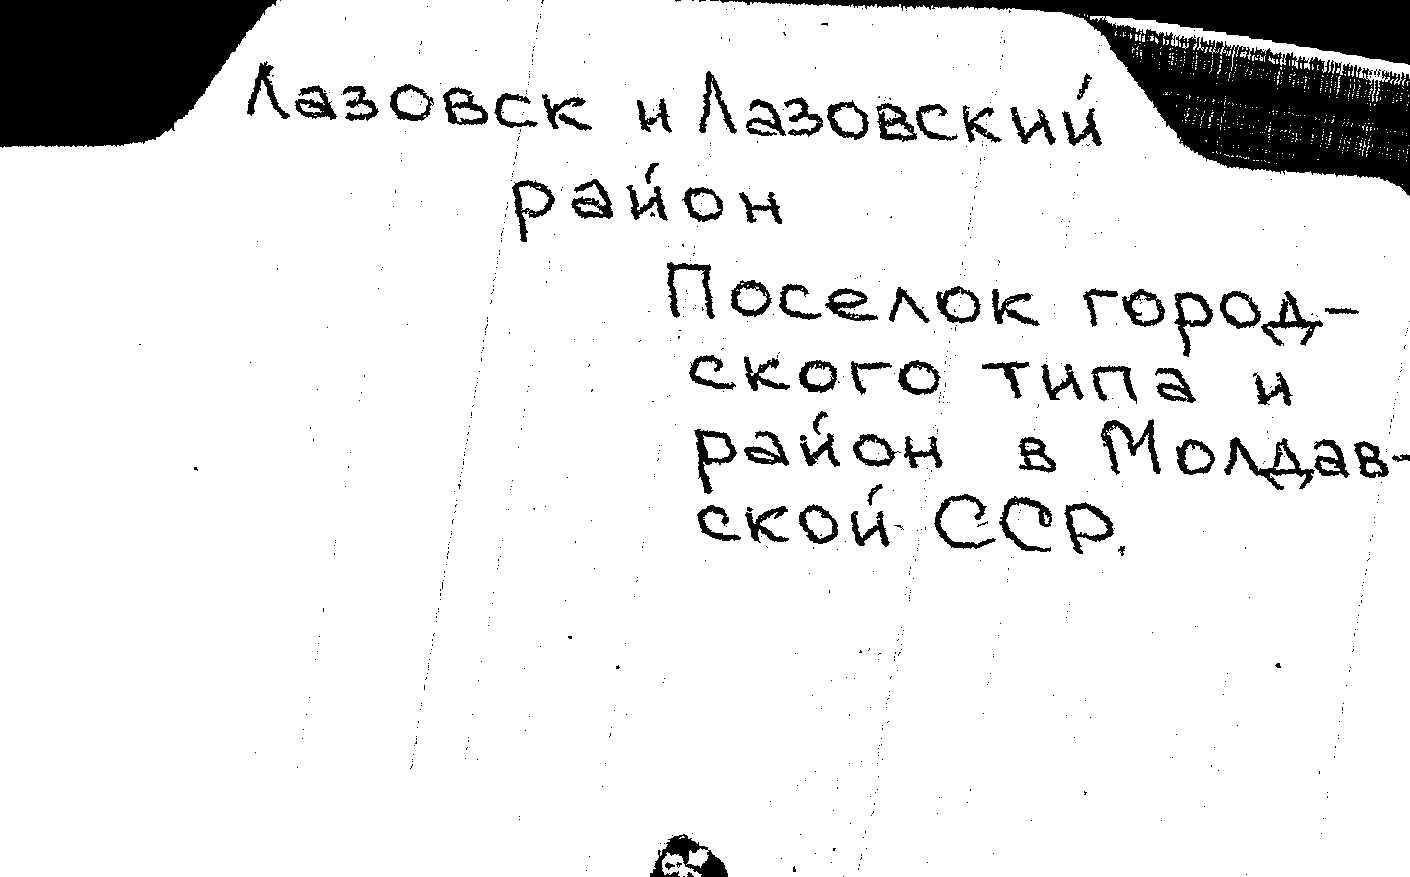 Лазовск и Лазовский
район
Поселок город-
ского типа и
район в Молдав-
ской ССР.